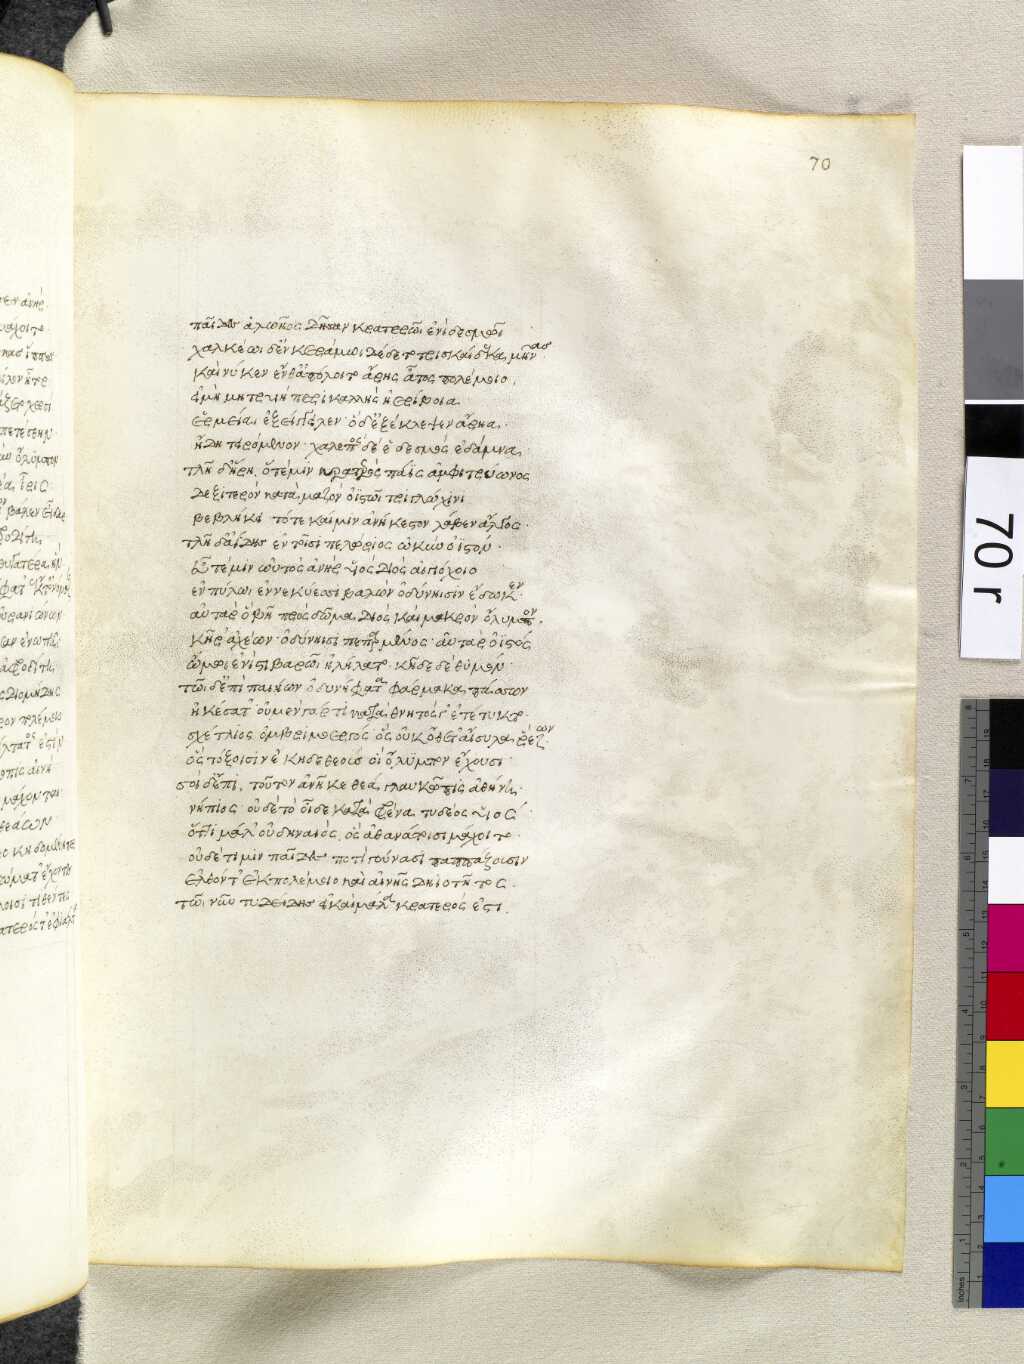 70
παῖδες ἀλωῆος δῆσαν κρατερῶι ἐνὶ δεσμῶι
χαλκέωι δ' ἐν κεράμωι δέδετο τρισκαίδεκα μῆνας·
καί νύ κεν ἔνθ' ἀπόλοιτο ἄρης ἆτος πολέμοιο,
εἰ μὴ μητρυιὴ περικαλλὴς ἠερίβοια
ἑρμείαι ἐξείγγειλεν· ὁ δ' ἐξέκλεψεν ἄρηα·
ἤδη τειρόμενον· χαλεπὸς δέ ἑ δεσμὸς ἐδάμνα·
τλῆ δ' ἥρη, ὅτε μιν κρατερὸς πάϊς ἀμφιτρύωνος
δεξιτερὸν κατὰ μαζὸν ὀϊστῶι τριγλώχινι
βεβλήκει· τότε καί μιν ἀνήκεστον λάβεν ἄλγος·
τλῆ δ' ἀΐδης ἐν τοῖσι πελώριος ὠκὺν ὀϊστόν·
εὖτέ μιν ωὑτὸς ἀνὴρ υἱὸς διὸς αἰγιόχοιο
ἐν πύλωι ἐν νεκύεσσι βαλὼν ὀδύνηισιν ἔδωκεν·
αὐτὰρ ὃ βῆ πρὸς δῶμα διὸς καὶ μακρὸν ὄλυμπον·
κῆρ ἀχέων· ὀδύνηισι πεπαρμένος· αὐτὰρ ὀϊστός
ὤμωι ἔνι στιβαρῶι ἠλήλατο· κῆδε δὲ θυμόν·
τῶι δ' ἐπὶ παιήων ὀδυνήφατα φάρμακα πάσσων
ἠκέσατ' οὐ μὲν γάρ τι καταθνητός γ' ἐτέτυκτο·
σχέτλιος ὀμβριμοεργός ὃς οὐκ ὄθετ' αἴσυλα ῥέζων
ὃς τόξοισιν ἔκηδε θεοὺς οἳ ὄλυμπον ἔχουσι·
σοὶ δ' ἐπὶ, τοῦτον ἀνῆκε θεά, γλαυκῶπις ἀθήνη·
νήπιος· οὐδὲ τὸ οἶδε κατὰ φρένα τυδέος υἱός
ὅττι μάλ' οὐ δηναιὸς, ὃς ἀθανάτοισι μάχοιτο·
οὐδέ τί μιν παῖδες ποτὶ γούνασι παππάζουσιν
ἐλθόντ' ἐκ πολέμοιο καὶ αἰνῆς δηϊοτῆτος·
τῶι νῦν τυδείδης εἰ καὶ μάλα κρατερός ἐστι,
70 r